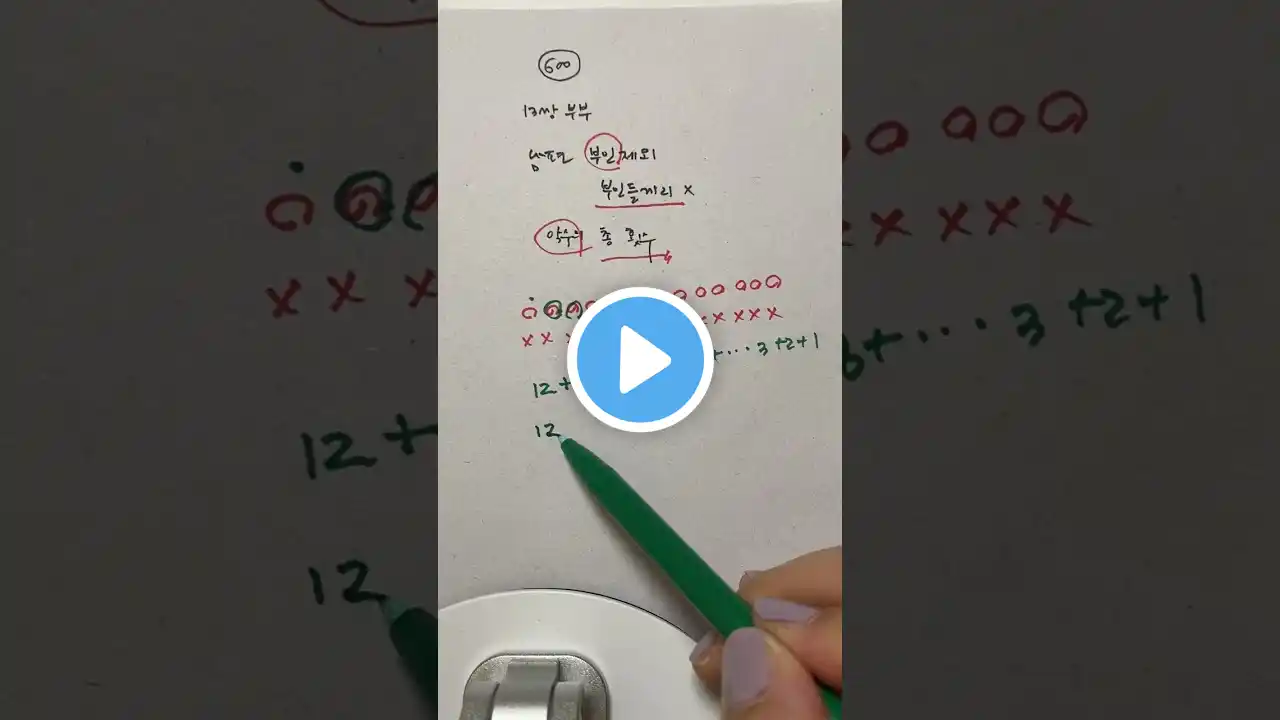 600
13쌍 부부
남편 부인제외
부인들끼리 x
악수의 총 횟수
12 +
+ ... 3 +2+1
12